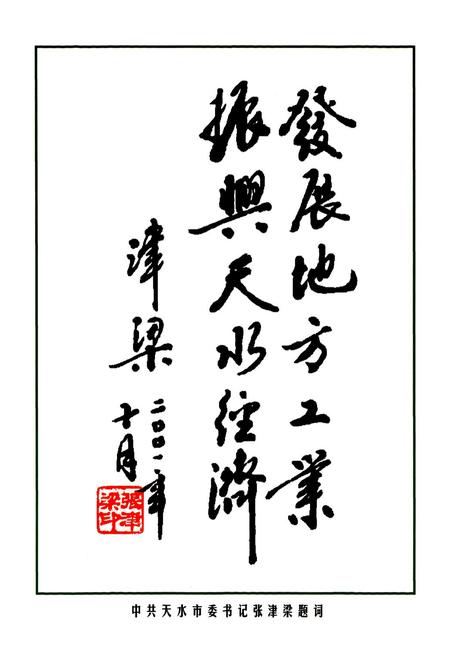 發展地方工業
振興天水經濟
津梁
二〇〇一年
十月
張津
梁印
中共天水市委书记张津梁题词